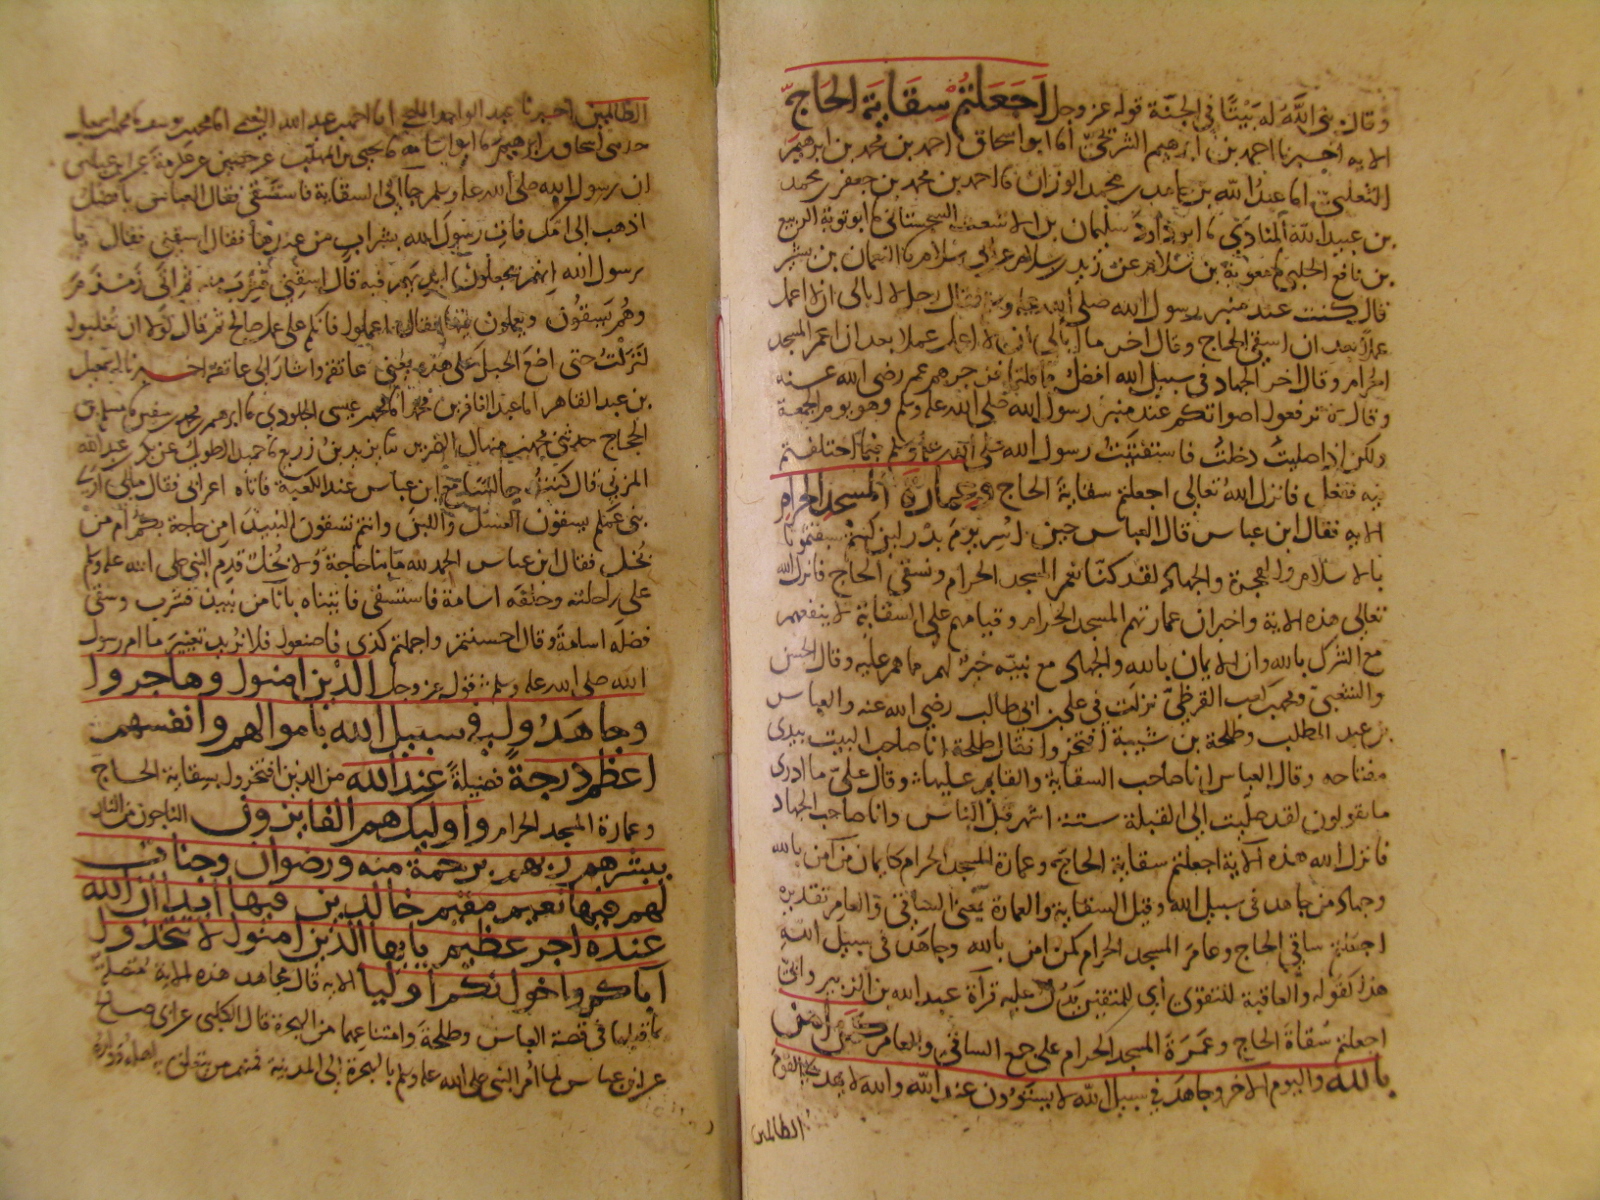 وقال بنى الله له بيتا في الجنة قوله عز وجل اجعلتم سقاية الحاج
الايه اخبرنا احمد بن ابرهيم الشريحي انا ابو اسحاق احمد بن محمد بن ابرهيم
الثعلبي انا عبد الله بن حامد بن محمد الوزان احمد بن محمد بن جعفر محمد
بن عبيد الله المنادي ابو داود سليمان بن الاشعث السجستاني ابو توبة الربيع
بن نافع الحلبي معوية بن سلام عن زيد بن سلام عن ابي سلام النعمان بن بشير
قال كنت عند منبر رسول الله صلى الله عليه وسلم فقال رجل لا ابالي ان لا اعمل
عملا بعد ان اسقي الحاج وقال اخر ما ابالي ان لا اعمل عملا بعد ان اعمر المسجد
الحرام وقال اخر الجهاد في سبيل الله افضل مما قلتم فزجرهم عمر رضي الله عنه
وقال لا ترفعوا اصواتكم عند منبر رسول الله صلى الله عليه وسلم وهو يوم الجمعة
ولكن اذا صليت دخلت فاستفتيت رسول الله صلى الله عليه وسلم فيما اختلفتم
فيه ففعل فانزل الله تعالى اجعلتم سقاية الحاج وعمارة المسجد الحرام
الايه فقال ابن عباس قال العباس حين اسر يوم بدر لين كنتم سبقتمونا
بالاسلام والهجرة والجهاد لقد كنا نعمر المسجد الحرام ونسقي الحاج فانزل الله
تعالى هذه الاية واخبر ان عمارتهم المسجد الحرام وقيامهم على السقاية لا ينفعهم
مع الشرك بالله وان الايمان بالله والجهاد مع نبيه خير لهم مما هم عليه وقال الحسن
والشعبي ومحمد بن كعب القرظي نزلت في علي بن ابي طالب رضي الله عنه والعباس
بن عبد المطلب وطلحة بن شيبة افتخروا فقال طلحة انا صاحب البيت بيدي
مفتاحه وقال العباس انا صاحب السقاية والقايم عليها وقال علي ما ادري
ما تقولون لقد صليت الى القبلة ستة اشهر قبل الناس وانا صاحب الجهاد
فانزل الله هذه الاية اجعلتم سقاية الحاج وعمارة المسجد الحرام كايمان من امن بالله
وجهاد من جاهد في سبيل الله وقيل السقاية والعمارة بمعنى الساقي والعامر تقديره
اجعلتم ساقي الحاج وعامر المسجد الحرام كمن امن بالله وجاهد في سبيل الله
هذا كقوله والعاقبة للتقوى اي للمتقين يدل عليه قراة عبد الله بن الزبير وابي
اجعلتم سقاة الحاج وعمرة المسجد الحرام على جمع الساقي والعامر كمن امن
بالله واليوم الاخر وجاهد في سبيل الله لا يستوون عند الله والله لا يهدي القوم
الظالمين
الظالمين اخبرنا عبد الواحد المليحي انا احمد عبد الله النعيمي انا محمد بن يوسف محمد بن اسمعيل
حدثني اسحاق بن ابرهيم ابو اسامة يحيى بن المهلب عن حصين عن عكرمة عن ابن عباس
ان رسول الله صلى الله عليه وسلم جا الى السقاية فاستسقى فقال العباس يا فضل
اذهب الى امك فات رسول الله بشراب من عندها فقال اسقني فقال يا
رسول الله انهم يجعلون ايديهم فيه قال اسقني فشرب منه ثم اتى زمزم
وهم يسقون ويعملون فيها فقال اعملوا فانكم على عمل صالح ثم قال لولا ان تغلبوا
لنزلت حتى اضع الحبل على هذه يعني عاتقه واشار الى عاتقه اخبرنا اسمعيل
بن عبد القاهر انا عبد الغافر بن محمد انا محمد بن عيسى الجلودي ابرهيم بن محمد بن سفين مسلم بن
الحجاج حدثني محمد بن منهال الضرير يزيد بن زريع حميد الطويل عن بكر بن عبد الله
المزني قال كنت جالسا مع ابن عباس عند الكعبة فاتاه اعرابي فقال مالي ارى
بني عمكم يسقون العسل واللبن وانتم تسقون النبيذ امن حاجة بكم ام من
بخل فقال ابن عباس الحمد لله ما بنا حاجة ولا بخل قدم النبي صلى الله عليه وسلم
على راحلته وخلفه اسامة فاستسقى فاتيناه بانا من نبيذ فشرب وسقى
فضله اسامة وقال احسنتم واجملتم كذى فاصنعوا فلا نريد تغيير ما امر رسول
الله صلى الله عليه وسلم قوله عز وجل الذين امنوا وهاجروا
وجاهدوا في سبيل الله باموالهم وانفسهم
اعظم درجة فضيلة عند الله من الذين افتخروا بسقاية الحاج
وعمارة المسجد الحرام واوليك هم الفايزون الناجون من النار
يبشرهم ربهم برحمة منه ورضوان وجنات
لهم فيها نعيم مقيم خالدين فيها ابدا ان الله
عنده اجر عظيم يايها الذين امنوا لا تتخذوا
اباكم واخوانكم اوليا الايه قال مجاهد هذه الاية متصلة
بما قبلها في قصة العباس وطلحة وامتناعهما من الهجرة قال الكلبي عن ابي صالح
عن ابن عباس لما امر النبي صلى الله عليه وسلم بالهجرة الى المدينة فمنهم من يتعلق به اهله وولده